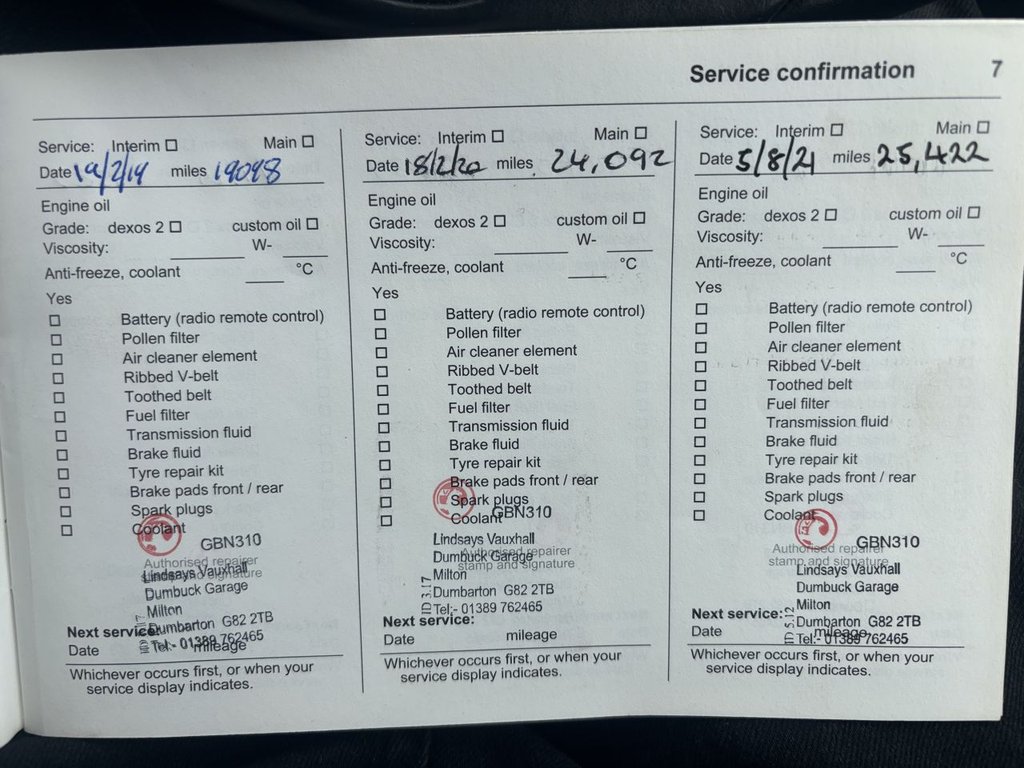 Service confirmation 7
Service: Interim ☐ Main ☐
Date 19/2/19 miles 19098
Engine oil
Grade: dexos 2 ☐ custom oil ☐
Viscosity: ______ W- ______
Anti-freeze, coolant ____ °C
Yes
☐ Battery (radio remote control)
☐ Pollen filter
☐ Air cleaner element
☐ Ribbed V-belt
☐ Toothed belt
☐ Fuel filter
☐ Transmission fluid
☐ Brake fluid
☐ Tyre repair kit
☐ Brake pads front / rear
☐ Spark plugs
☐ Coolant
GBN310
Authorised repairer
stamp and signature
Lindsays Vauxhall
Dumbuck Garage
Milton
Dumbarton G82 2TB
Tel:- 01389 762465
Next service:
Date mileage
Whichever occurs first, or when your
service display indicates.
Service: Interim ☐ Main ☐
Date 18/2/20 miles 24,092
Engine oil
Grade: dexos 2 ☐ custom oil ☐
Viscosity: ______ W- ______
Anti-freeze, coolant ____ °C
Yes
☐ Battery (radio remote control)
☐ Pollen filter
☐ Air cleaner element
☐ Ribbed V-belt
☐ Toothed belt
☐ Fuel filter
☐ Transmission fluid
☐ Brake fluid
☐ Tyre repair kit
☐ Brake pads front / rear
☐ Spark plugs
☐ Coolant
GBN310
Lindsays Vauxhall
Authorised repairer
Dumbuck Garage
stamp and signature
Milton
Dumbarton G82 2TB
Tel:- 01389 762465
ID 3.17
Next service:
Date mileage
Whichever occurs first, or when your
service display indicates.
Service: Interim ☐ Main ☐
Date 5/8/21 miles 25,422
Engine oil
Grade: dexos 2 ☐ custom oil ☐
Viscosity: ______ W- ______
Anti-freeze, coolant ____ °C
Yes
☐ Battery (radio remote control)
☐ Pollen filter
☐ Air cleaner element
☐ Ribbed V-belt
☐ Toothed belt
☐ Fuel filter
☐ Transmission fluid
☐ Brake fluid
☐ Tyre repair kit
☐ Brake pads front / rear
☐ Spark plugs
☐ Coolant
GBN310
Authorised repairer
stamp and signature
Lindsays Vauxhall
Dumbuck Garage
Milton
Dumbarton G82 2TB
Tel:- 01389 762465
Next service:
Date mileage
Whichever occurs first, or when your
service display indicates.